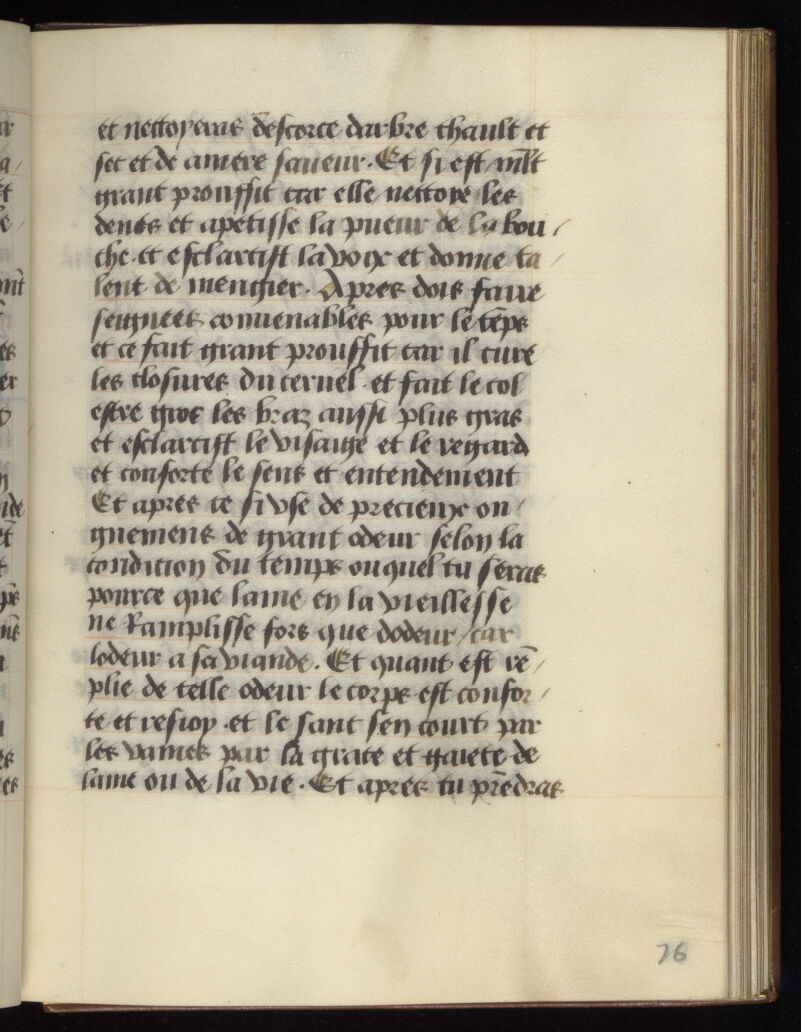 et nettoyeras descorce darbre chault et
sec et de amere saueur. Et si est mlt̄
grant prouffit car elle nettoye les
dents et apetisse la pueur de la bou/
che. et esclarcist la voix et donne ta/
lent de mengier. Apres dois faire
seignees conuenables pour le tēps
et ce fait grant prouffit car il cure
les closures du ceruel. et fait le col
estre gros les braz aussi plus gras
et esclarcist le visaige et le regard
et conforte le sens et entendement
Et apres ce si vse de precieux on/
gnemens de grant odeur selon la
condicion du temps ouquel tu seras
pource que lame en la vieillesse
ne Ramplisse fors que dodeur/car
lodeur a sa viande. Et quant est rē/
plie de telle odeur le corps est confor/
te et resioy. et le sanc sen court par
les vaines par la grace et gaiete de
lame ou de la vie. Et apres tu prēdras
26